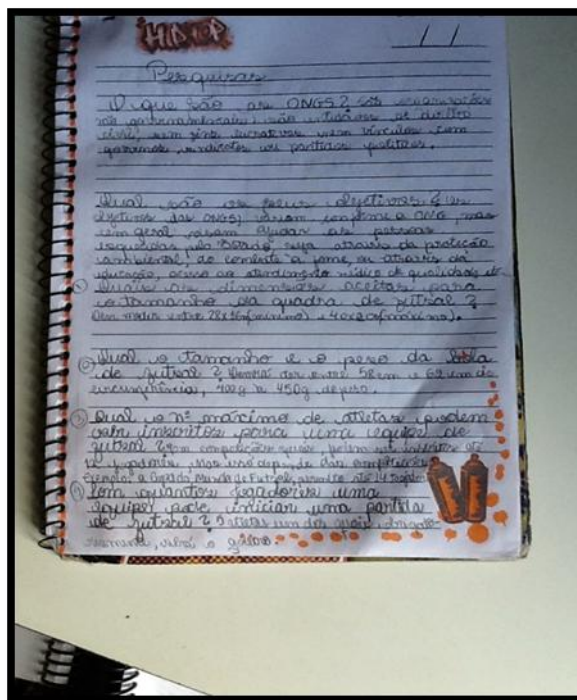 HIP HOP
/ /
Pesquisar
O que são as ONGS? são organizações
não governamentais, são entidades de direito
civil, sem fins lucrativos nem vínculos com
governos, sindicatos ou partidos políticos.
Qual são os seus objetivos? os
objetivos das ONGS, variam conforme a ONG, mas
em geral visam ajudar as pessoas
esquecidas pelo Estado seja através da proteção
ambiental, do combate a fome, ou através da
educação, acesso ao atendimento médico de qualidade etc
① Quais as dimensões aceitas para
o tamanho da quadra de futsal?
entre 28x16m(mínimo) e 40x20m(máximo).
② Qual o tamanho e o peso da bola
de futsal? Deverá ter entre 58 cm e 62 cm de
circunferência, 400g à 450g de peso.
③ Qual o nº máximo de atletas podem
ser inscritos para uma equipe de
futsal? Em competições podem ser inscritos até
12 jogadores, mas isso depende das competições
exemplo: a Copa do Mundo de Futsal, permite até 14 jogadores
④ Com quantos jogadores uma
equipe pode iniciar uma partida
de futsal? 5 atletas um dos quais, obrigato-
riamente, será o goleiro.